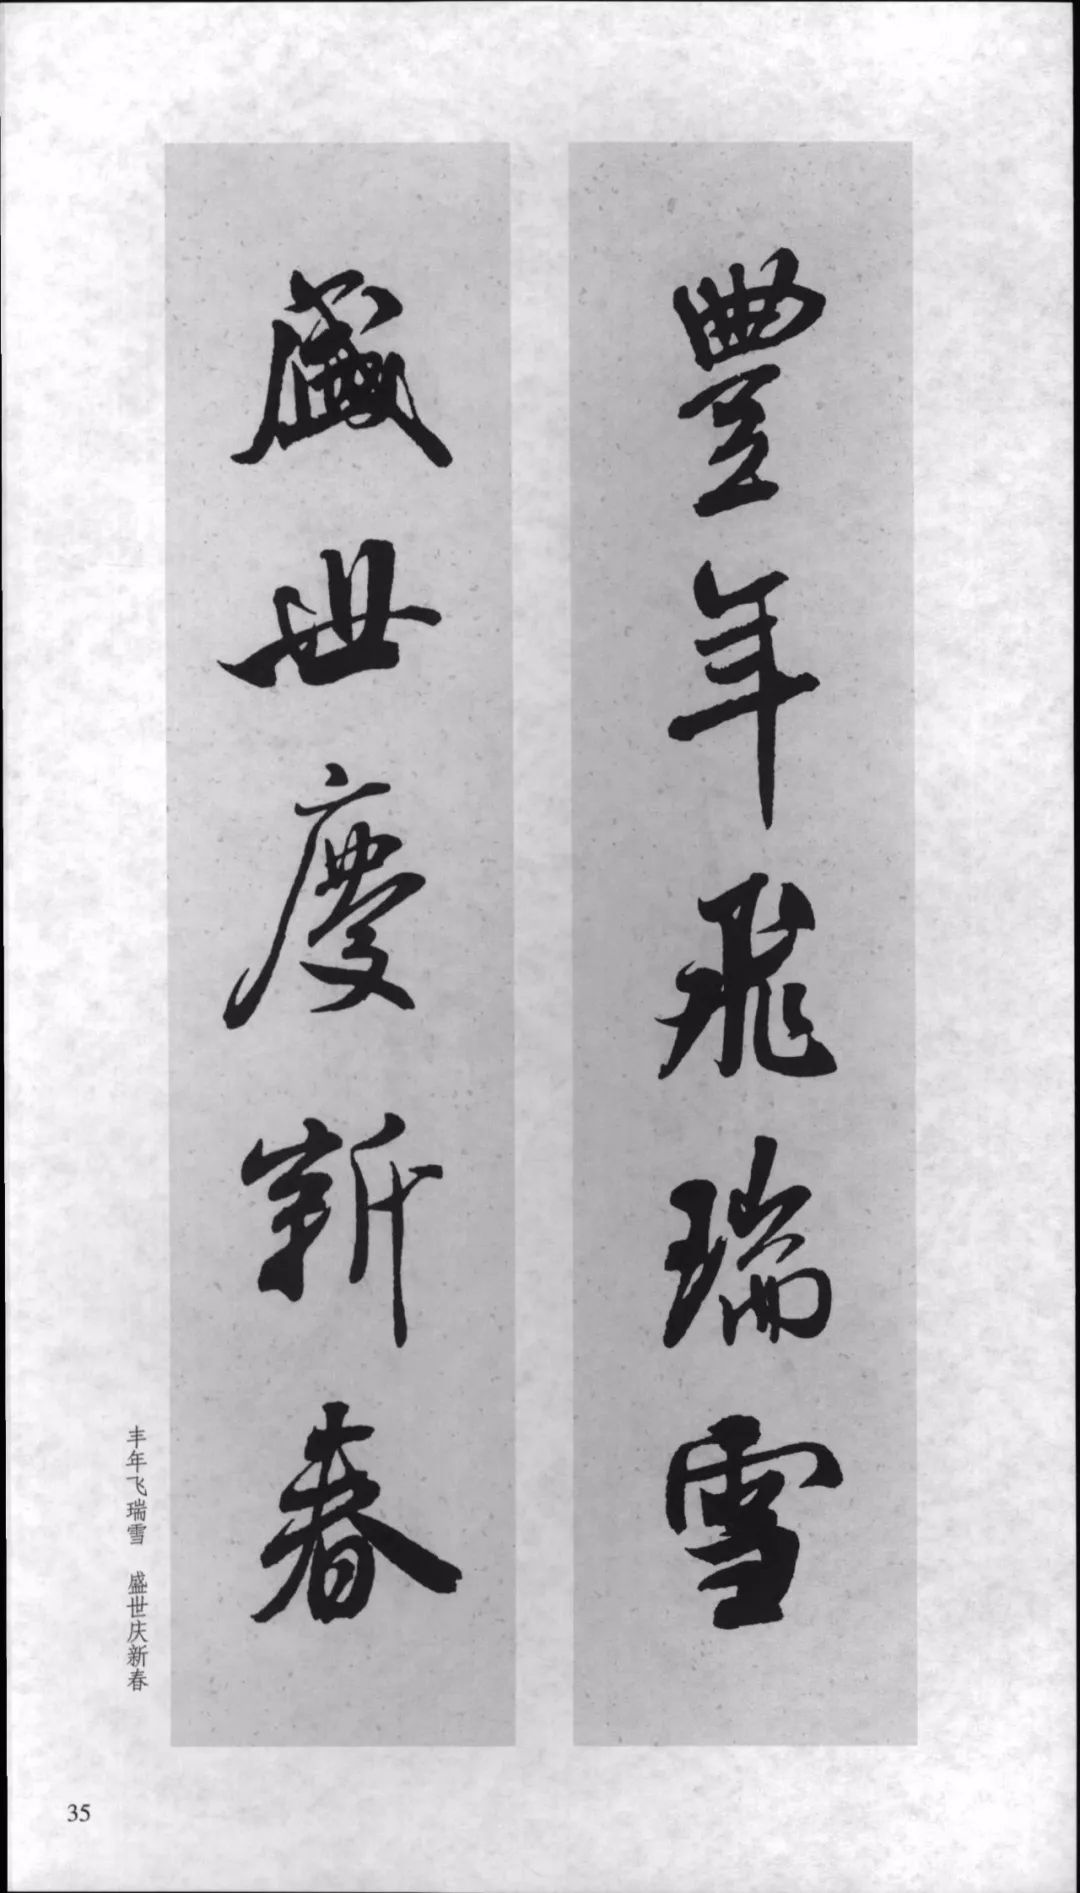 豐年飛瑞雪
盛世慶新春
丰年飞瑞雪　盛世庆新春
35